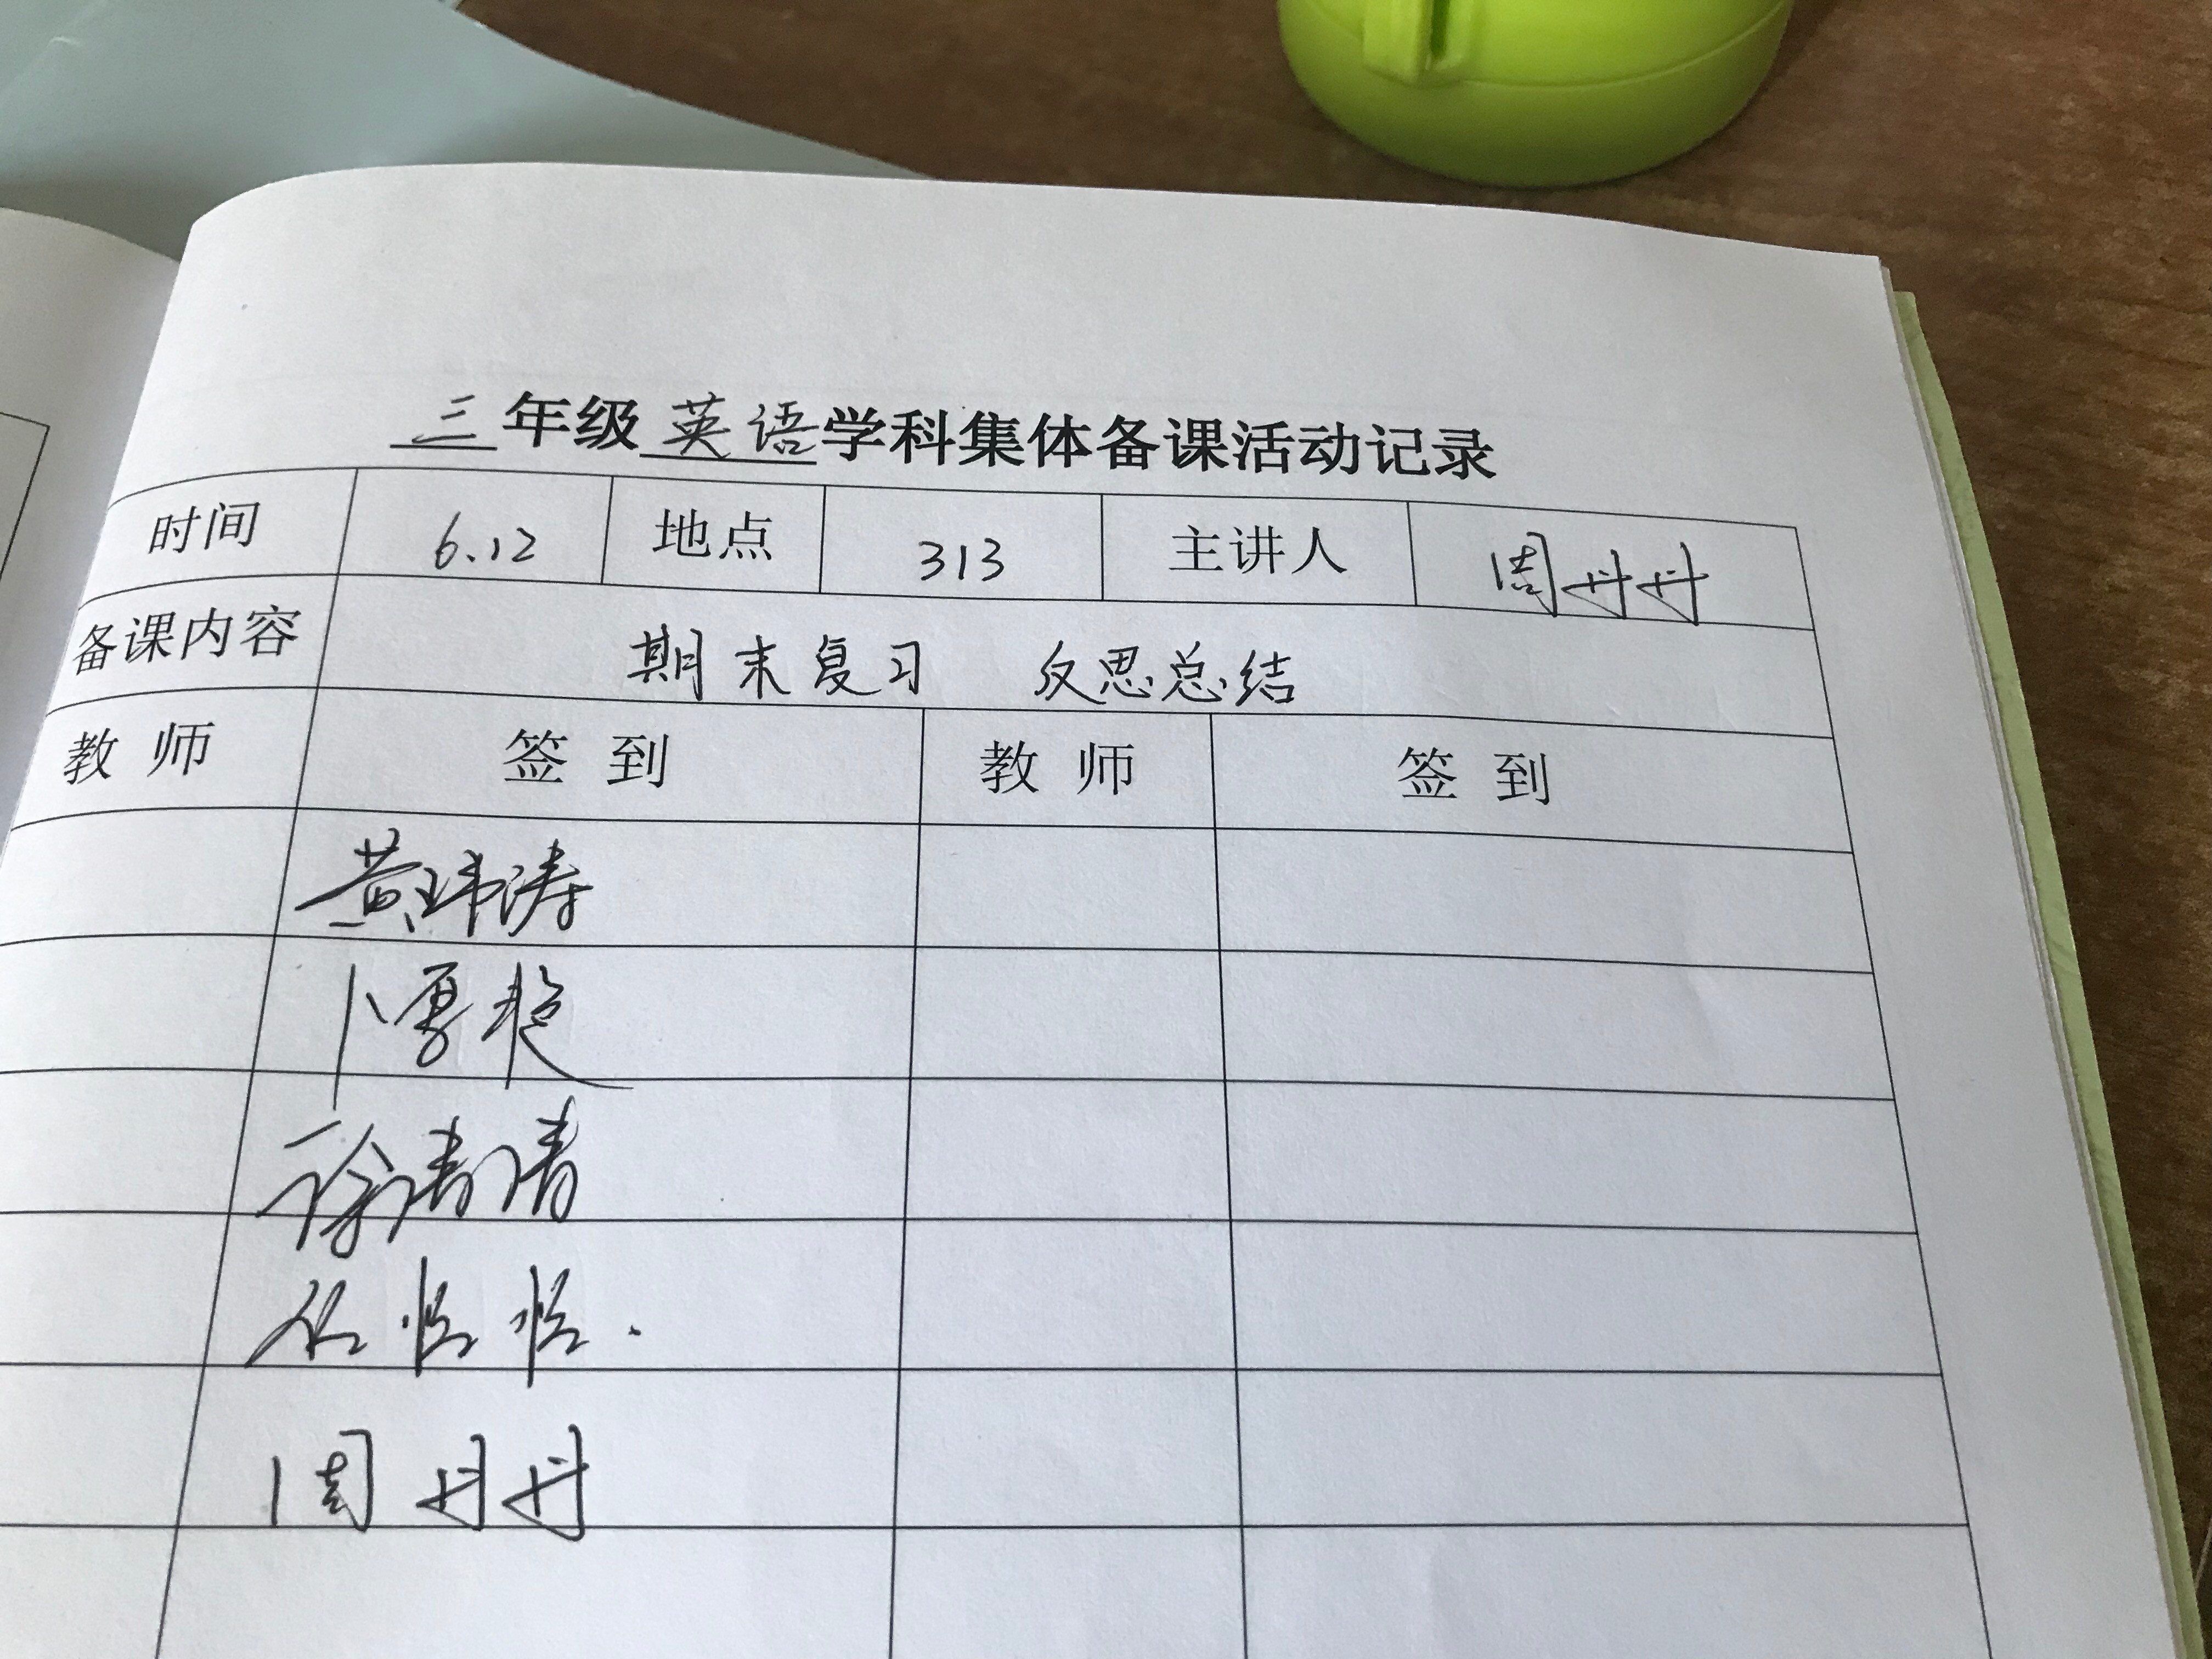 三年级英语学科集体备课活动记录
时间 6.12 地点 313 主讲人 周丹丹
备课内容 期末复习 反思总结
教师 签到 教师 签到
黄玮涛
徐清清
周丹丹